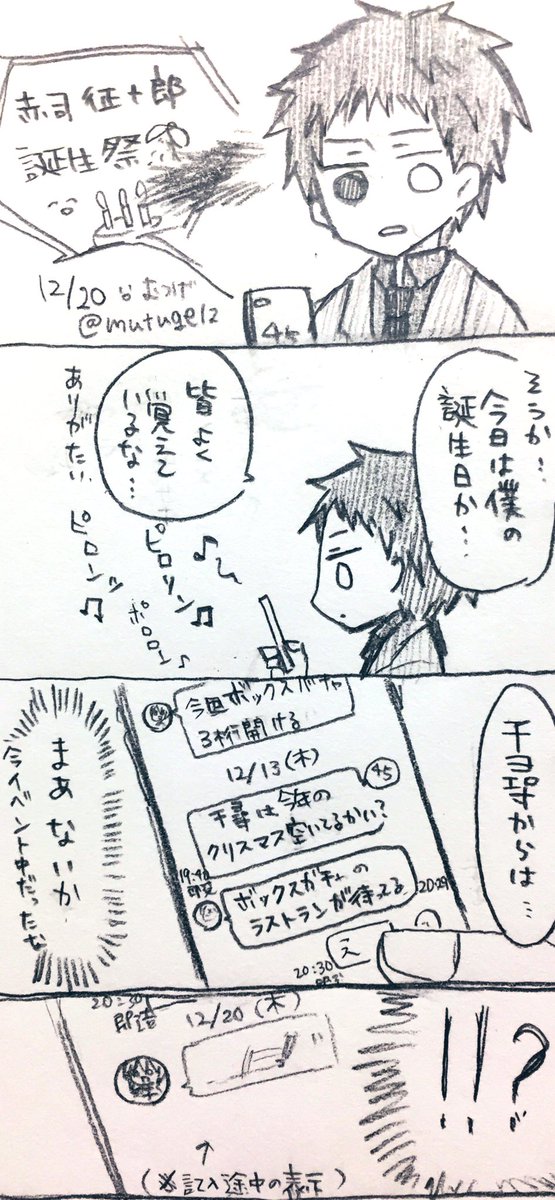 赤司征十郎
誕生祭
12/20
むつげ
@mutuge12
45
そうか…
今日は僕の
誕生日か…
皆よく
覚えて
いるな…
ありがたい
ピロリン
ピロンッ
ポロロン
千尋からは…
今回ボックスガチャ
3桁開ける
12/13(木)
45
千尋は今年の
クリスマス空いてるかい?
19:40
既読
ボックスガチャの
ラストランが待ってる
20:29
え
20:30
まあないか
今イベント中だったな
20:30
既読
12/20(木)
!!?
↑
(※記入途中の表示)